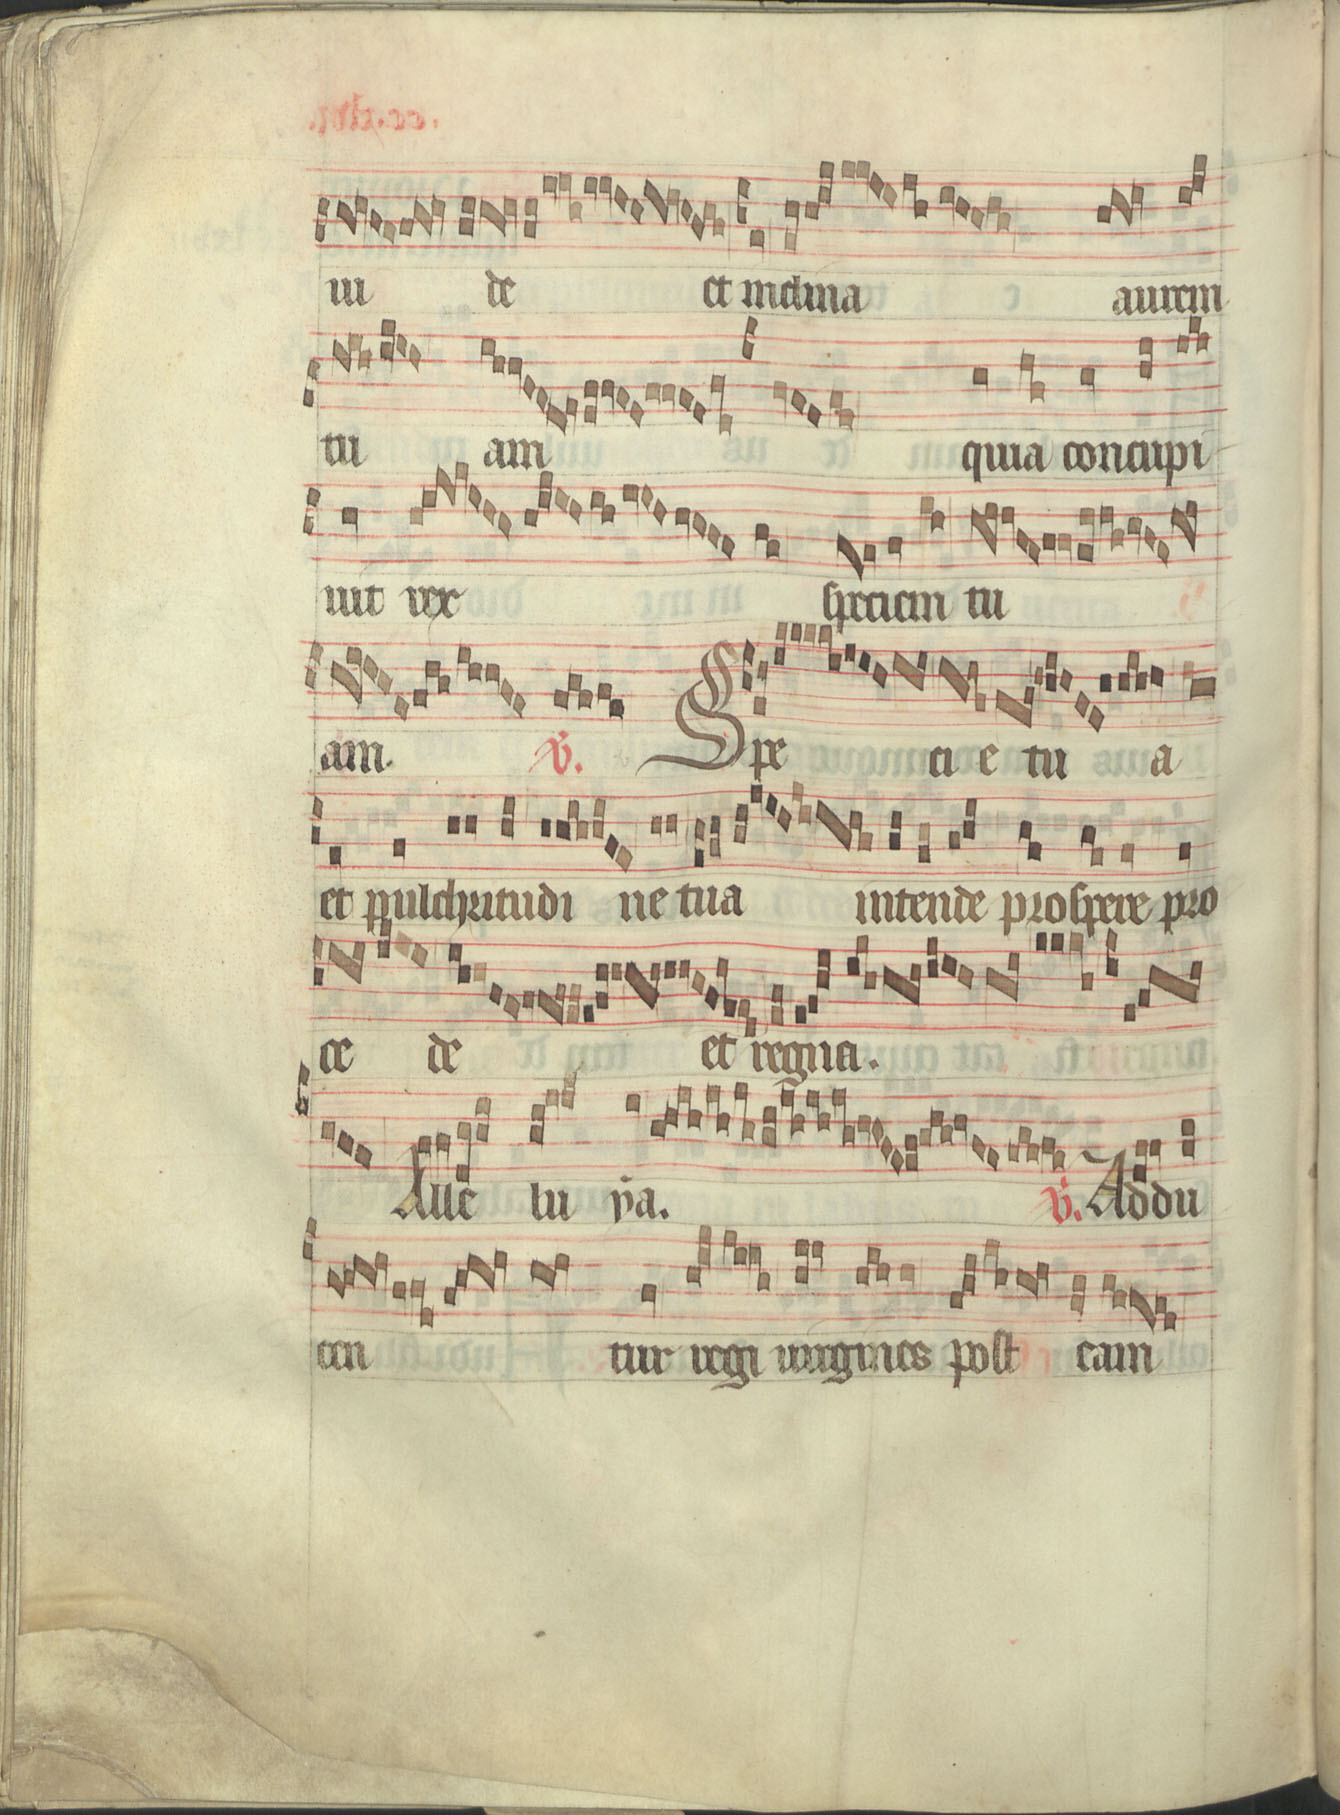 ui de et inclina aurem
tu am quia concupi
uit rex speciem tu
am. V. Spe ci e tu a
et pulchritudi ne tua intende prospere pro
ce de et regna.
Alle lu ya. V. Addu
cen tur regi uirgines post eam